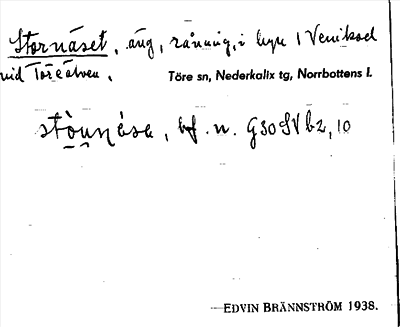 Stornäset, äng, råmmig, i byn 1 Venikod
vid Töreälven.
Töre sn, Nederkalix tg, Norrbottens l.
bf. n. G30SVb2, 10
EDVIN BRÄNNSTRÖM 1938.